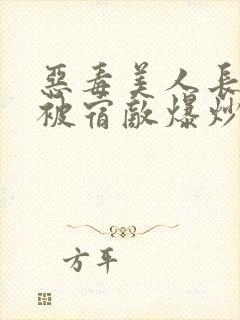 惡毒美人長
被宿敵爆炒
方平